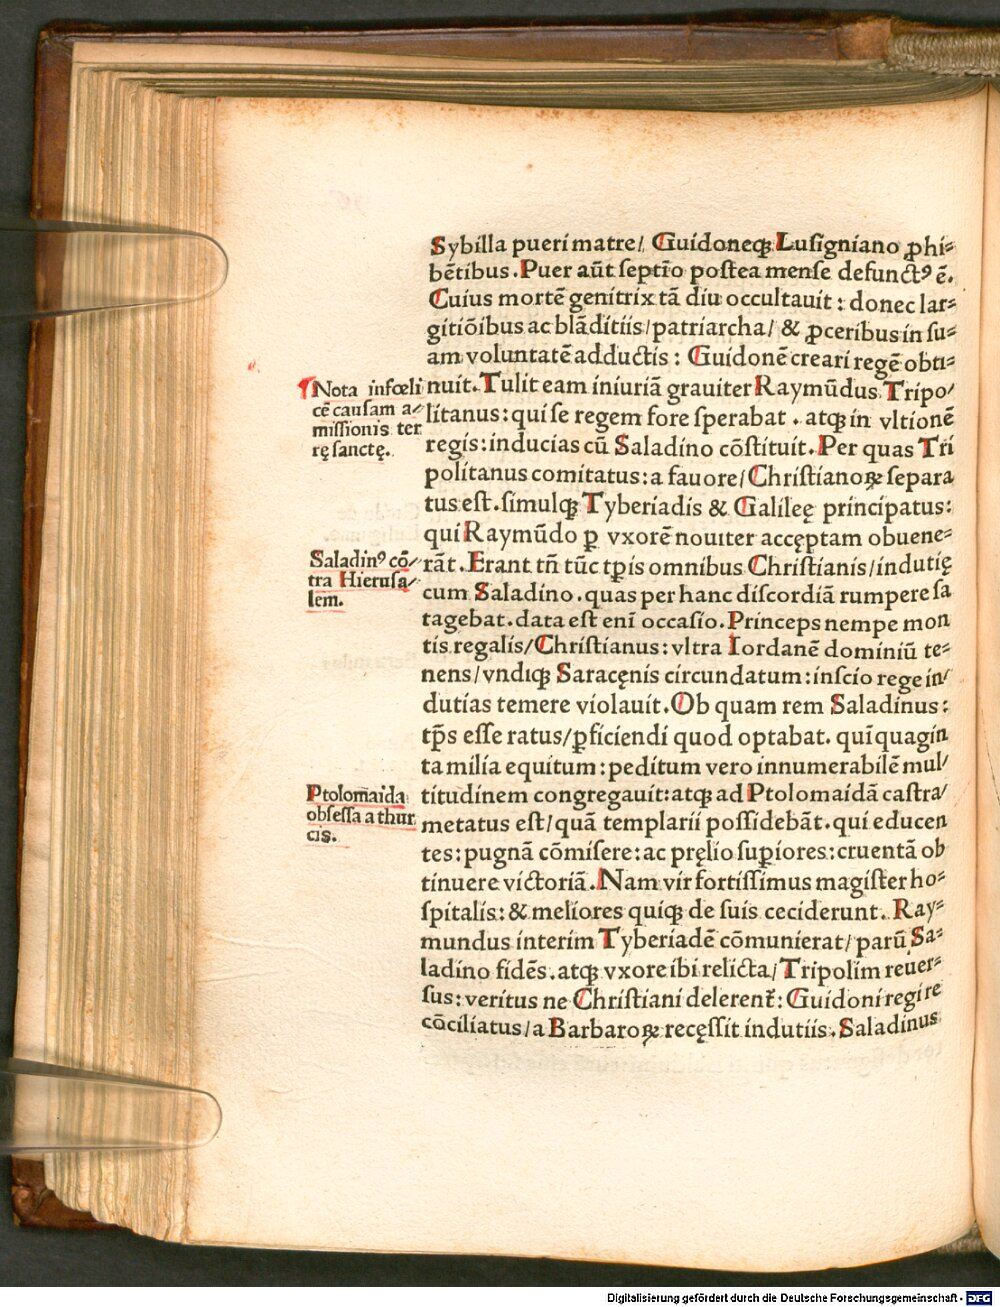 Sybilla pueri matre/ Guidoneqꝫ Lusigniano ꝓhi⸗
bētibus. Puer aūt septīo postea mense defunctꝰ ē.
Cuius mortē genitrix tā diu occultauit: donec lar⸗
gitiōibus ac blāditiis/patriarcha/ & ꝓceribus in su⸗
am voluntatē adductis: Guidonē creari regē obti⸗
nuit. Tulit eam iniuriā grauiter Raymūdus Tripo/
litanus: qui se regem fore sperabat. atqꝫ in vltionē
regis: inducias cū Saladino cōstituit. Per quas Tri
politanus comitatus: a fauore/Christianoꝝ separa
tus est. simulqꝫ Tyberiadis & Galileę principatus:
qui Raymūdo ꝑ vxorē nouiter accęptam obuene⸗
rāt. Erant tn̄ tūc tꝑis omnibus Christianis/indutię
cum Saladino. quas per hanc discordiā rumpere sa
tagebat. data est enī occasio. Princeps nempe mon
tis regalis/Christianus: vltra Iordanē dominiū te⸗
nens/vndiqꝫ Saracęnis circundatum: inscio rege in/
dutias temere violauit. Ob quam rem Saladinus:
tp̄s esse ratus/ꝑficiendi quod optabat. quiquagin
ta milia equitum: peditum vero innumerabilē mul/
titudinem congregauit: atqꝫ ad Ptolomaidā castra/
metatus est/quā templarii possidebāt. qui educen
tes: pugnā cōmisere: ac pręlio suꝑiores: cruentā ob
tinuere victoriā. Nam vir fortissimus magister ho⸗
spitalis: & meliores quiqꝫ de suis ceciderunt. Ray⸗
mundus interim Tyberiadē cōmunierat/parū Sa⸗
ladino fidēs. atqꝫ vxore ibi relicta/Tripolim reuer⸗
sus: veritus ne Christiani delerent᷑: Guidoni regi re
cōciliatus/a Barbaroꝝ recęssit indutiis. Saladinus
¶Nota infœli
cē causam a/
missionis ter
rę sanctę.
Saladinꝰ cō/
tra Hierusa/
lem.
Ptolomaida
obsessa a thur
cis.
Digitalisierung gefördert durch die Deutsche Forschungsgemeinschaft - DFG